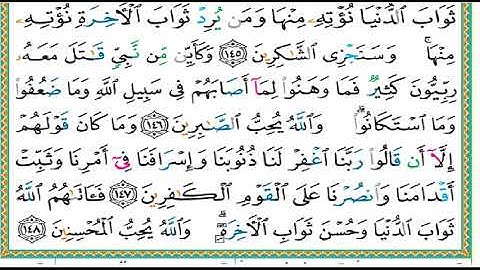 ثَوَابَ ٱلدُّنْيَا نُؤْتِهِۦ مِنْهَا وَمَن يُرِدْ ثَوَابَ ٱلْأَخِرَةِ نُؤْتِهِۦ
مِنْهَا ۚ وَسَنَجْزِى ٱلشَّـٰكِرِينَ ١٤٥ وَكَأَيِّن مِّن نَّبِىٍّ قَـٰتَلَ مَعَهُۥ
رِبِّيُّونَ كَثِيرٌ فَمَا وَهَنُوا۟ لِمَآ أَصَابَهُمْ فِى سَبِيلِ ٱللَّهِ وَمَا ضَعُفُوا۟
وَمَا ٱسْتَكَانُوا۟ ۗ وَٱللَّهُ يُحِبُّ ٱلصَّـٰبِرِينَ ١٤٦ وَمَا كَانَ قَوْلَهُمْ
إِلَّآ أَن قَالُوا۟ رَبَّنَا ٱغْفِرْ لَنَا ذُنُوبَنَا وَإِسْرَافَنَا فِىٓ أَمْرِنَا وَثَبِّتْ
أَقْدَامَنَا وَٱنصُرْنَا عَلَى ٱلْقَوْمِ ٱلْكَـٰفِرِينَ ١٤٧ فَـَٔاتَىٰهُمُ ٱللَّهُ
ثَوَابَ ٱلدُّنْيَا وَحُسْنَ ثَوَابِ ٱلْأَخِرَةِ ۗ وَٱللَّهُ يُحِبُّ ٱلْمُحْسِنِينَ ١٤٨